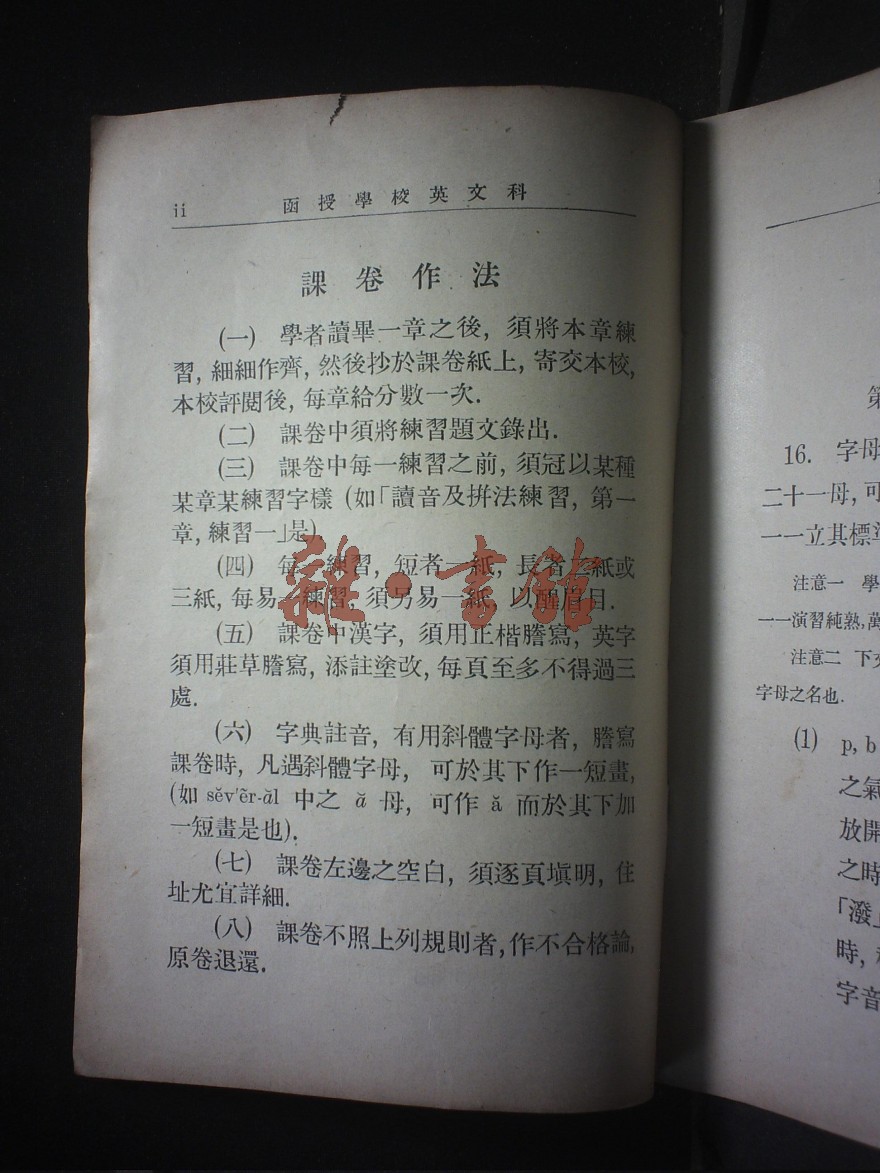 ii 函授學校英文科
課卷作法
(一) 學者讀畢一章之後, 須將本章練
習, 細細作齊, 然後抄於課卷紙上, 寄交本校,
本校評閱後, 每章給分數一次.
(二) 課卷中須將練習題文錄出.
(三) 課卷中每一練習之前, 須冠以某種
某章某練習字樣 (如「讀音及拼法練習, 第一
章, 練習一」是)
(四) 每一練習, 短者一紙, 長者二紙或
三紙, 每易一練習, 須另易一紙, 以醒眉目.
(五) 課卷中漢字, 須用正楷謄寫, 英字
須用莊草謄寫, 添註塗改, 每頁至多不得過三
處.
(六) 字典註音, 有用斜體字母者, 謄寫
課卷時, 凡遇斜體字母, 可於其下作一短畫,
(如 sĕv'ẽr-ăl 中之 ă 母, 可作 ă 而於其下加
一短畫是也).
(七) 課卷左邊之空白, 須逐頁塡明, 住
址尤宜詳細.
(八) 課卷不照上列規則者, 作不合格論,
原卷退還.
雜·書館
第
16. 字母
二十一母, 可
一一立其標準
注意一 學
一一演習純熟, 萬
注意二 下
字母之名也.
(1) p, b
之氣
放開
之時
「潑」
時,
字音